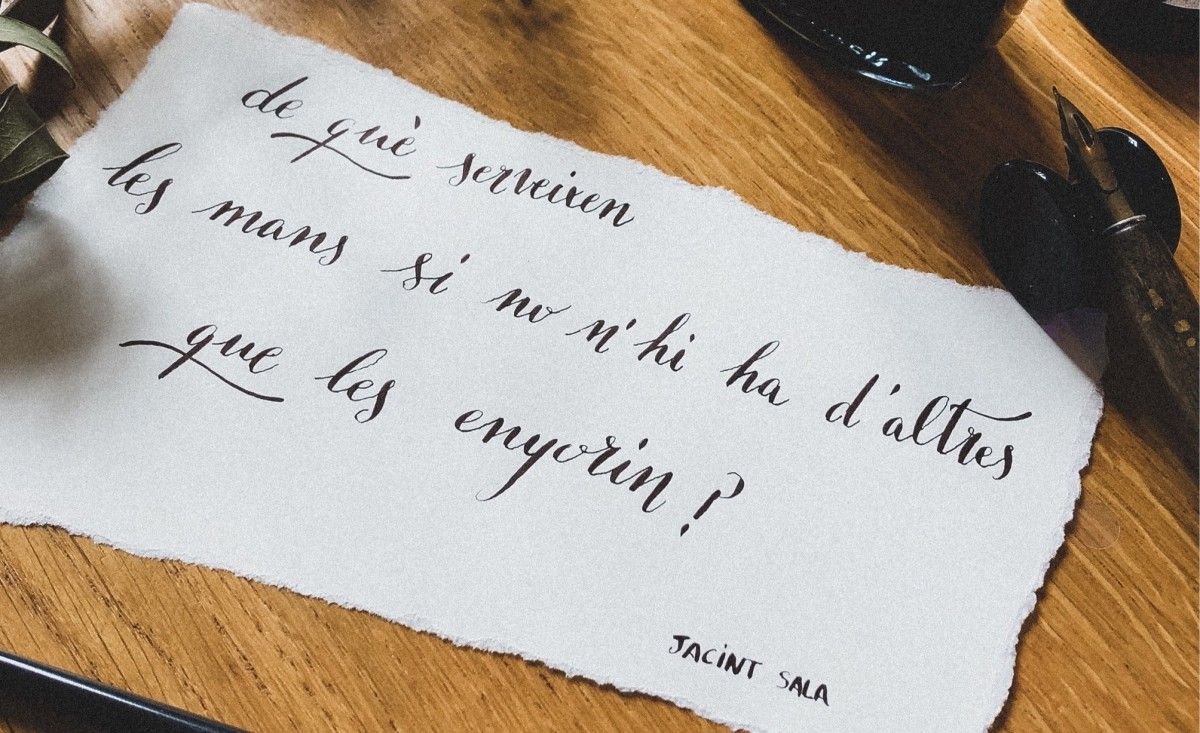 de què serveixen
les mans si no n'hi ha d'altres
que les enyorin?
JACINT SALA